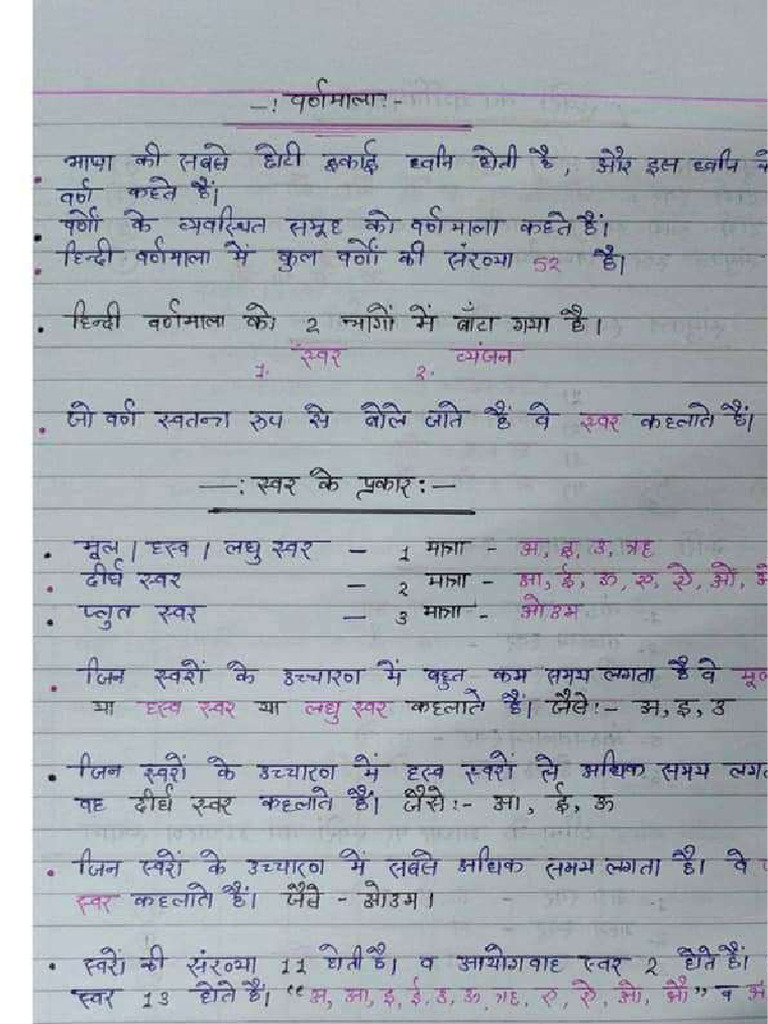 -: वर्णमाला:-
भाषा की सबसे छोटी इकाई ध्वनि होती है, और इस ध्वनि
वर्ण कहते हैं।
वर्णों के व्यवस्थित समूह को वर्णमाला कहते हैं।
हिन्दी वर्णमाला में कुल वर्णों की संख्या 52 है।
हिन्दी वर्णमाला को 2 भागों में बाँटा गया है।
1. स्वर 2. व्यंजन
जो वर्ण स्वतन्त्र रूप से बोले जाते हैं वे स्वर कहलाते हैं।
-: स्वर के प्रकार:-
मूल / ह्रस्व / लघु स्वर - 1 मात्रा - अ, इ, उ, ऋ
दीर्घ स्वर - 2 मात्रा - आ, ई, ऊ, ए, ऐ, ओ,
प्लुत स्वर - 3 मात्रा - ओउम
जिन स्वरों के उच्चारण में बहुत कम समय लगता है वे
या ह्रस्व स्वर या लघु स्वर कहलाते हैं। जैसे:- अ, इ, उ
जिन स्वरों के उच्चारण में ह्रस्व स्वरों से अधिक समय
वह दीर्घ स्वर कहलाते हैं। जैसे:- आ, ई, ऊ
जिन स्वरों के उच्चारण में सबसे अधिक समय लगता है। वे
स्वर कहलाते हैं। जैसे - ओउम।
स्वरों की संख्या 11 होती है। व आयोगवाह स्वर 2 होते हैं।
स्वर 13 होते हैं। "अ, आ, इ, ई, उ, ऊ, ऋ, ए, ऐ, ओ, औ" व